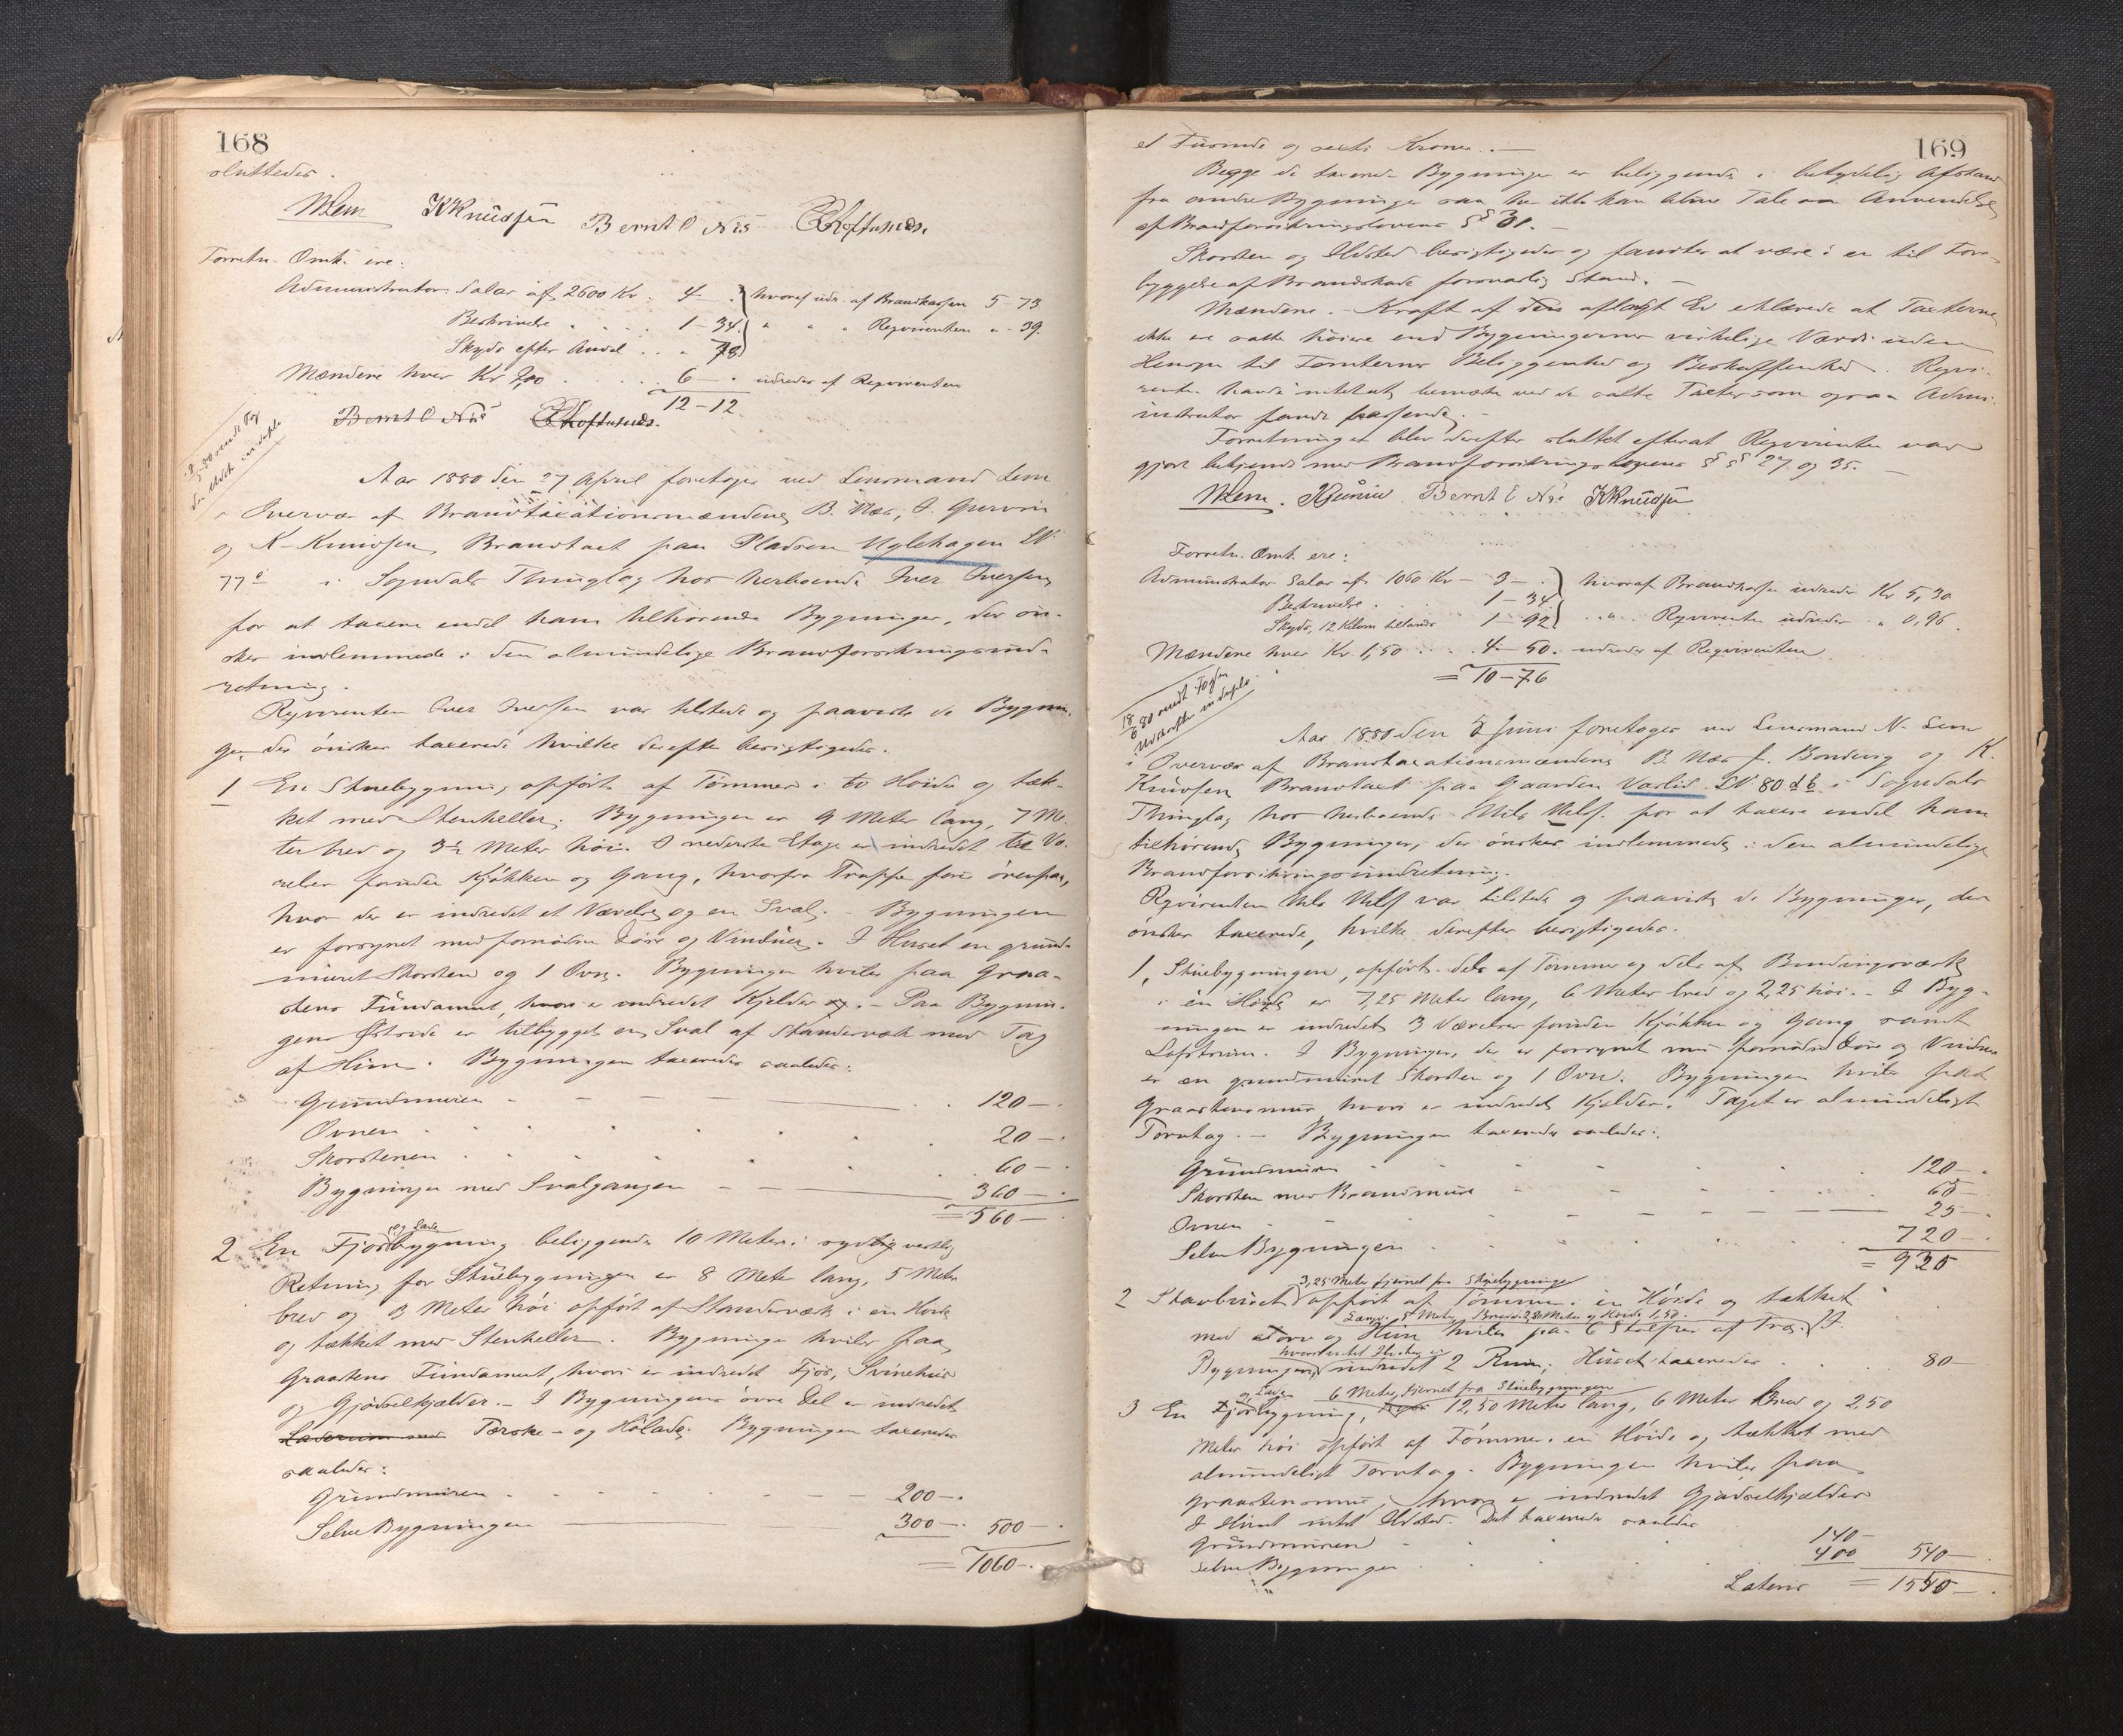 168
sluttedes.
NLem KKnudsen Bernt O Næs
Forretn. Omk. ere:
Administrator Salar af 2600 Kr. 4 — . hvoraf udr. af Brandkassen 5-73
Beskrivelse . . . 1-34. " " " Reqvirenten " . 39.
Skyds efter Andel . . " 78
Mændene hver Kr 2,00 . . . . 6 — . udredes af Reqvirenten
12-12
Bernt O Næs
Aar 1880 den 27 April foretoges ved Lensmand Lem
i Overvær af Brandtaxationsmændene B. Næs, J. Gurvin
og K. Knudsen, Brandtaxt paa Pladsen Uglehagen LN
77 i Sogndals Thinglag hos herboende Iver Iversen
for at taxere endel ham tilhørende Bygninger, der øn-
skes indlemmede i den almindelige Brandforsikringsind-
retning.
Reqvirenten Iver Iversen var tilstede og paaviste de Bygnin-
ger, der ønskes taxerede hvilke derefter besigtigedes.
1 En Stuebygning opført af Tømmer i to Høider og tæk-
ket med Stenheller. Bygningen er 9 Meter lang, 7 Me-
ter bred og 3½ Meter høi. I nederste Etage er indredet tre Væ-
relser foruden Kjøkken og Gang, hvorfra Trappe fører ovenpaa,
hvor der er indredet et Værelse og en Sval. - Bygningen
er forsynet med fornødne Døre og Vinduer. I Huset en grund-
muret Skorsten og 1 Ovn. Bygningen hviler paa Graa-
stens Fundament, hvori er indredet Kjelder og. - Paa Bygnin-
gens Østside er tilbygget en Sval af Standervæk med Tag
af Him. Bygningen taxeredes saaledes:
Grundmuren — — — 120 — .
Ovnen . . . . 20 — .
Skorstenen . . . . 60 — .
Bygningen med Svalgangen — — 360 — .
= 560 — .
og Lade
2 En Fjøsbygning beliggende 10 Meter i sydlig vestlig
Retning for Stuebygningen er 8 Meter lang, 5 Meter
bred og 3 Meter høi opført af Standerværk i en Høide
og tækket med Stenheller. Bygningen hviler paa
Graastens Fundament, hvori er indredet Fjøs, Svinehus
og Gjødselkjælder. - I Bygningens øvre Del er indredet
Laderum med Tærske- og Hølade. Bygningen taxeredes
saaledes:
Grundmuren . . . . — — 200 — .
Selve Bygningen — 300 — . 500 — .
= 1060 — .
169
et Tusinde og sexti Kroner. —
Begge de taxerede Bygninger er beliggende i betydelig Afstand
fra andre Bygninger saa her ikke kan blive Tale om Anvendelse
af Brandforsikringslovens §§ 31. —
Skorsten og Ildsted besigtigedes og fandtes at være i en til Fore-
byggelse af Brandskade forsvarlig Stand. —
Mændene. - Kraft af den aflagt Ed erklærede at Taxterne
ikke ere satte høiere end Bygningernes virkelige Værdi uden
Hensyn til Tomternes Beliggenhed og Beskaffenhed. Reqvi-
renten havde intet at bemærke ved de satte Taxter som ogsaa Admi-
nistrator fandt passende. -
Forretningen blev derefter sluttet efterat Reqvirenten var
gjort bekjendt med Brandforsikringslovens §§ 27 og 35. —
NLem. JGurvin Bernt O Næs KKnudsen
Forretn. Omk. ere:
Administrator Salar af 1060 Kr — 3 — . hvoraf Brandkassen udreder Kr 5,30
Beskrivelse . . . 1-34
Skyds, 12 Kilom tillands 1-92 " Reqvirenten udreder " 0,96
Mændene hver Kr. 1,50 . . . 4-50. udredes af Reqvirenten
= 10-76
Aar 1880 den 8 Juni foretoges ved Lensmand N. Lem
i Overvær af Brandtaxationsmændene B. Næs J. Bondevig og K.
Knudsen Brandtaxt paa Gaarden Vaslid LN 80 i Sogndals
Thinglag hos herboende Nils Nilss. for at taxere endel ham
tilhørende Bygninger, der ønskes indlemmede i den almindelige
Brandforsikringsindretning.
Reqvirenten Nils Nilss var tilstede og paaviste de Bygninger, der
ønskes taxerede, hvilke derefter besigtigedes.
1, Stuebygningen, opført dels af Tømmer og dels af Bindingsværk
i en Høide er 7,25 Meter lang, 6 Meter bred og 2,25 høi. - I Byg-
ningen er indredet 3 Værelser foruden Kjøkken og Gang samt
Loftsrum. I Bygningen, der er forsynet med fornødne Døre og Vinduer
er en grundmuret Skorsten og 1 Ovn. Bygningen hviler paa
Graastensmur, hvori er indredet Kjelder. Taget er almindeligt
Torvtag. — Bygningen taxeredes saaledes:
Grundmuren . . . 120 — .
Skorsten med Brandmure . . . 65 —
Ovnen . . . 25 — .
Selve Bygningen . . . 720 — .
= 930
3,25 Meter fjernet fra Stuebygningen
2 Stavbruet opført af Tømmer i en Høide og tækket
Længde 5 Meter, Bredde Meter og Høide 1,50.
med Torv og Him hviler paa 6 Stolper af Træ. I
Bygningen, indredet 2 Rum, Huset taxeredes . . . 80 —
og Lade 6 Meter fjernet fra Stuebygningen
3 En Fjøsbygning, 12,50 Meter lang, 6 Meter bred og 2,50
Meter høi opført af Tømmer i en Høide og tækket med
almindeligt Torvtag. Bygningen hviler paa
Graastensmur, hvori er indredet Gjødselkjælder
I Huset intet Ildsted. Det taxeredes saaledes
Grundmuren . . . 140 —
Selve Bygningen . . . 400 540 —
Lateris = 1550 — .